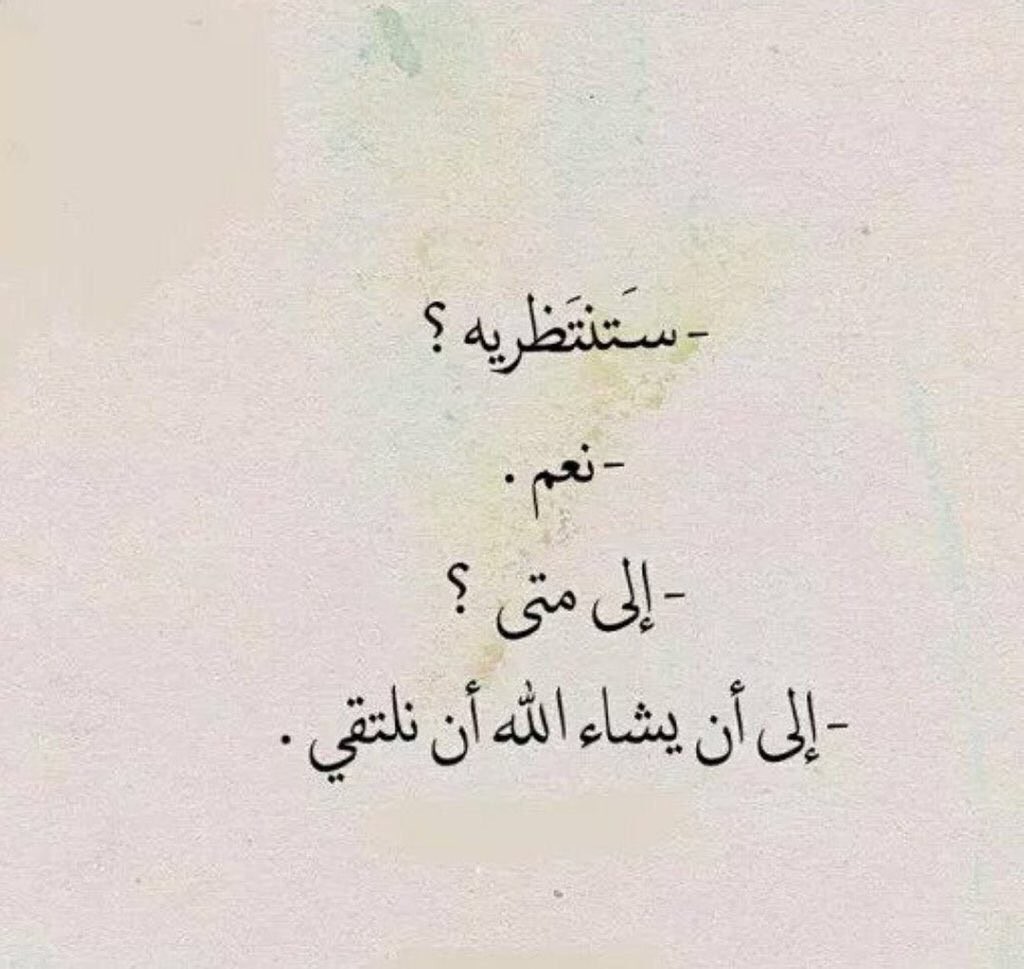 -ستَنتَظريه ؟
-نعم .
-إلى متى ؟
-إلى أن يشاء الله أن نلتقي .